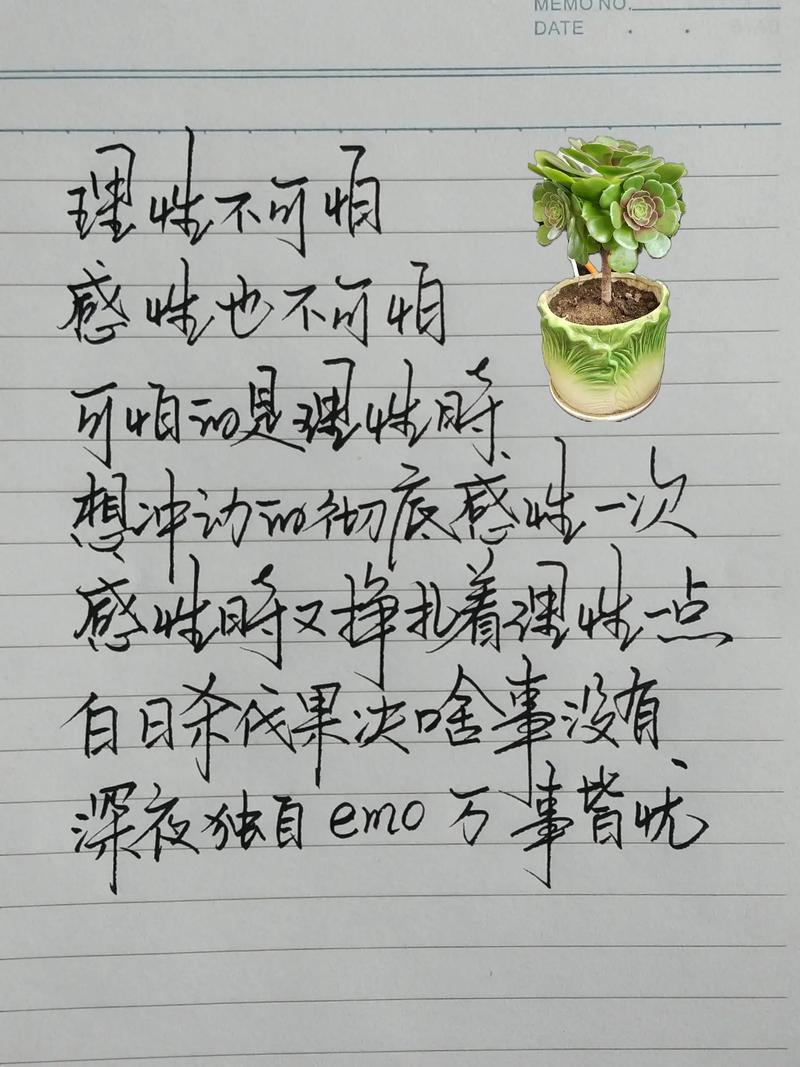 MEMO NO.
DATE . .
理性不可怕
感性也不可怕
可怕的是理性時
想冲动的彻底感性一次
感性時又挣扎着理性一点
白日杀伐果决啥事没有
深夜独自emo万事皆忧